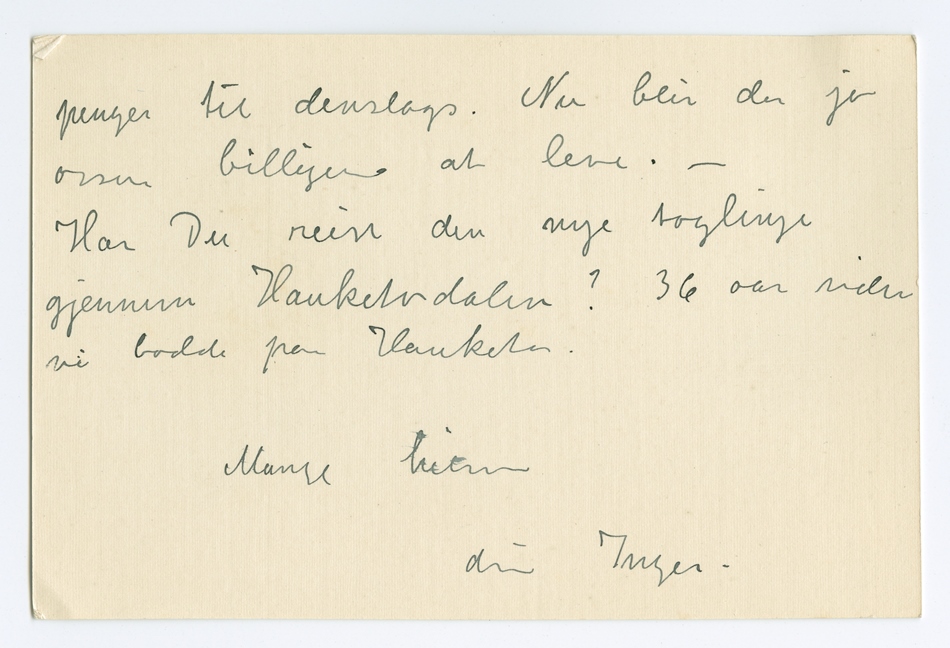 penger til denslags. Nu blir der jo
ossaa billigere at leve. —
Har Du reist den nye toglinje
gjennem Hauketodalen? 36 aar siden
vi bodde paa Hauketo.
Mange hilsen
din Inger.